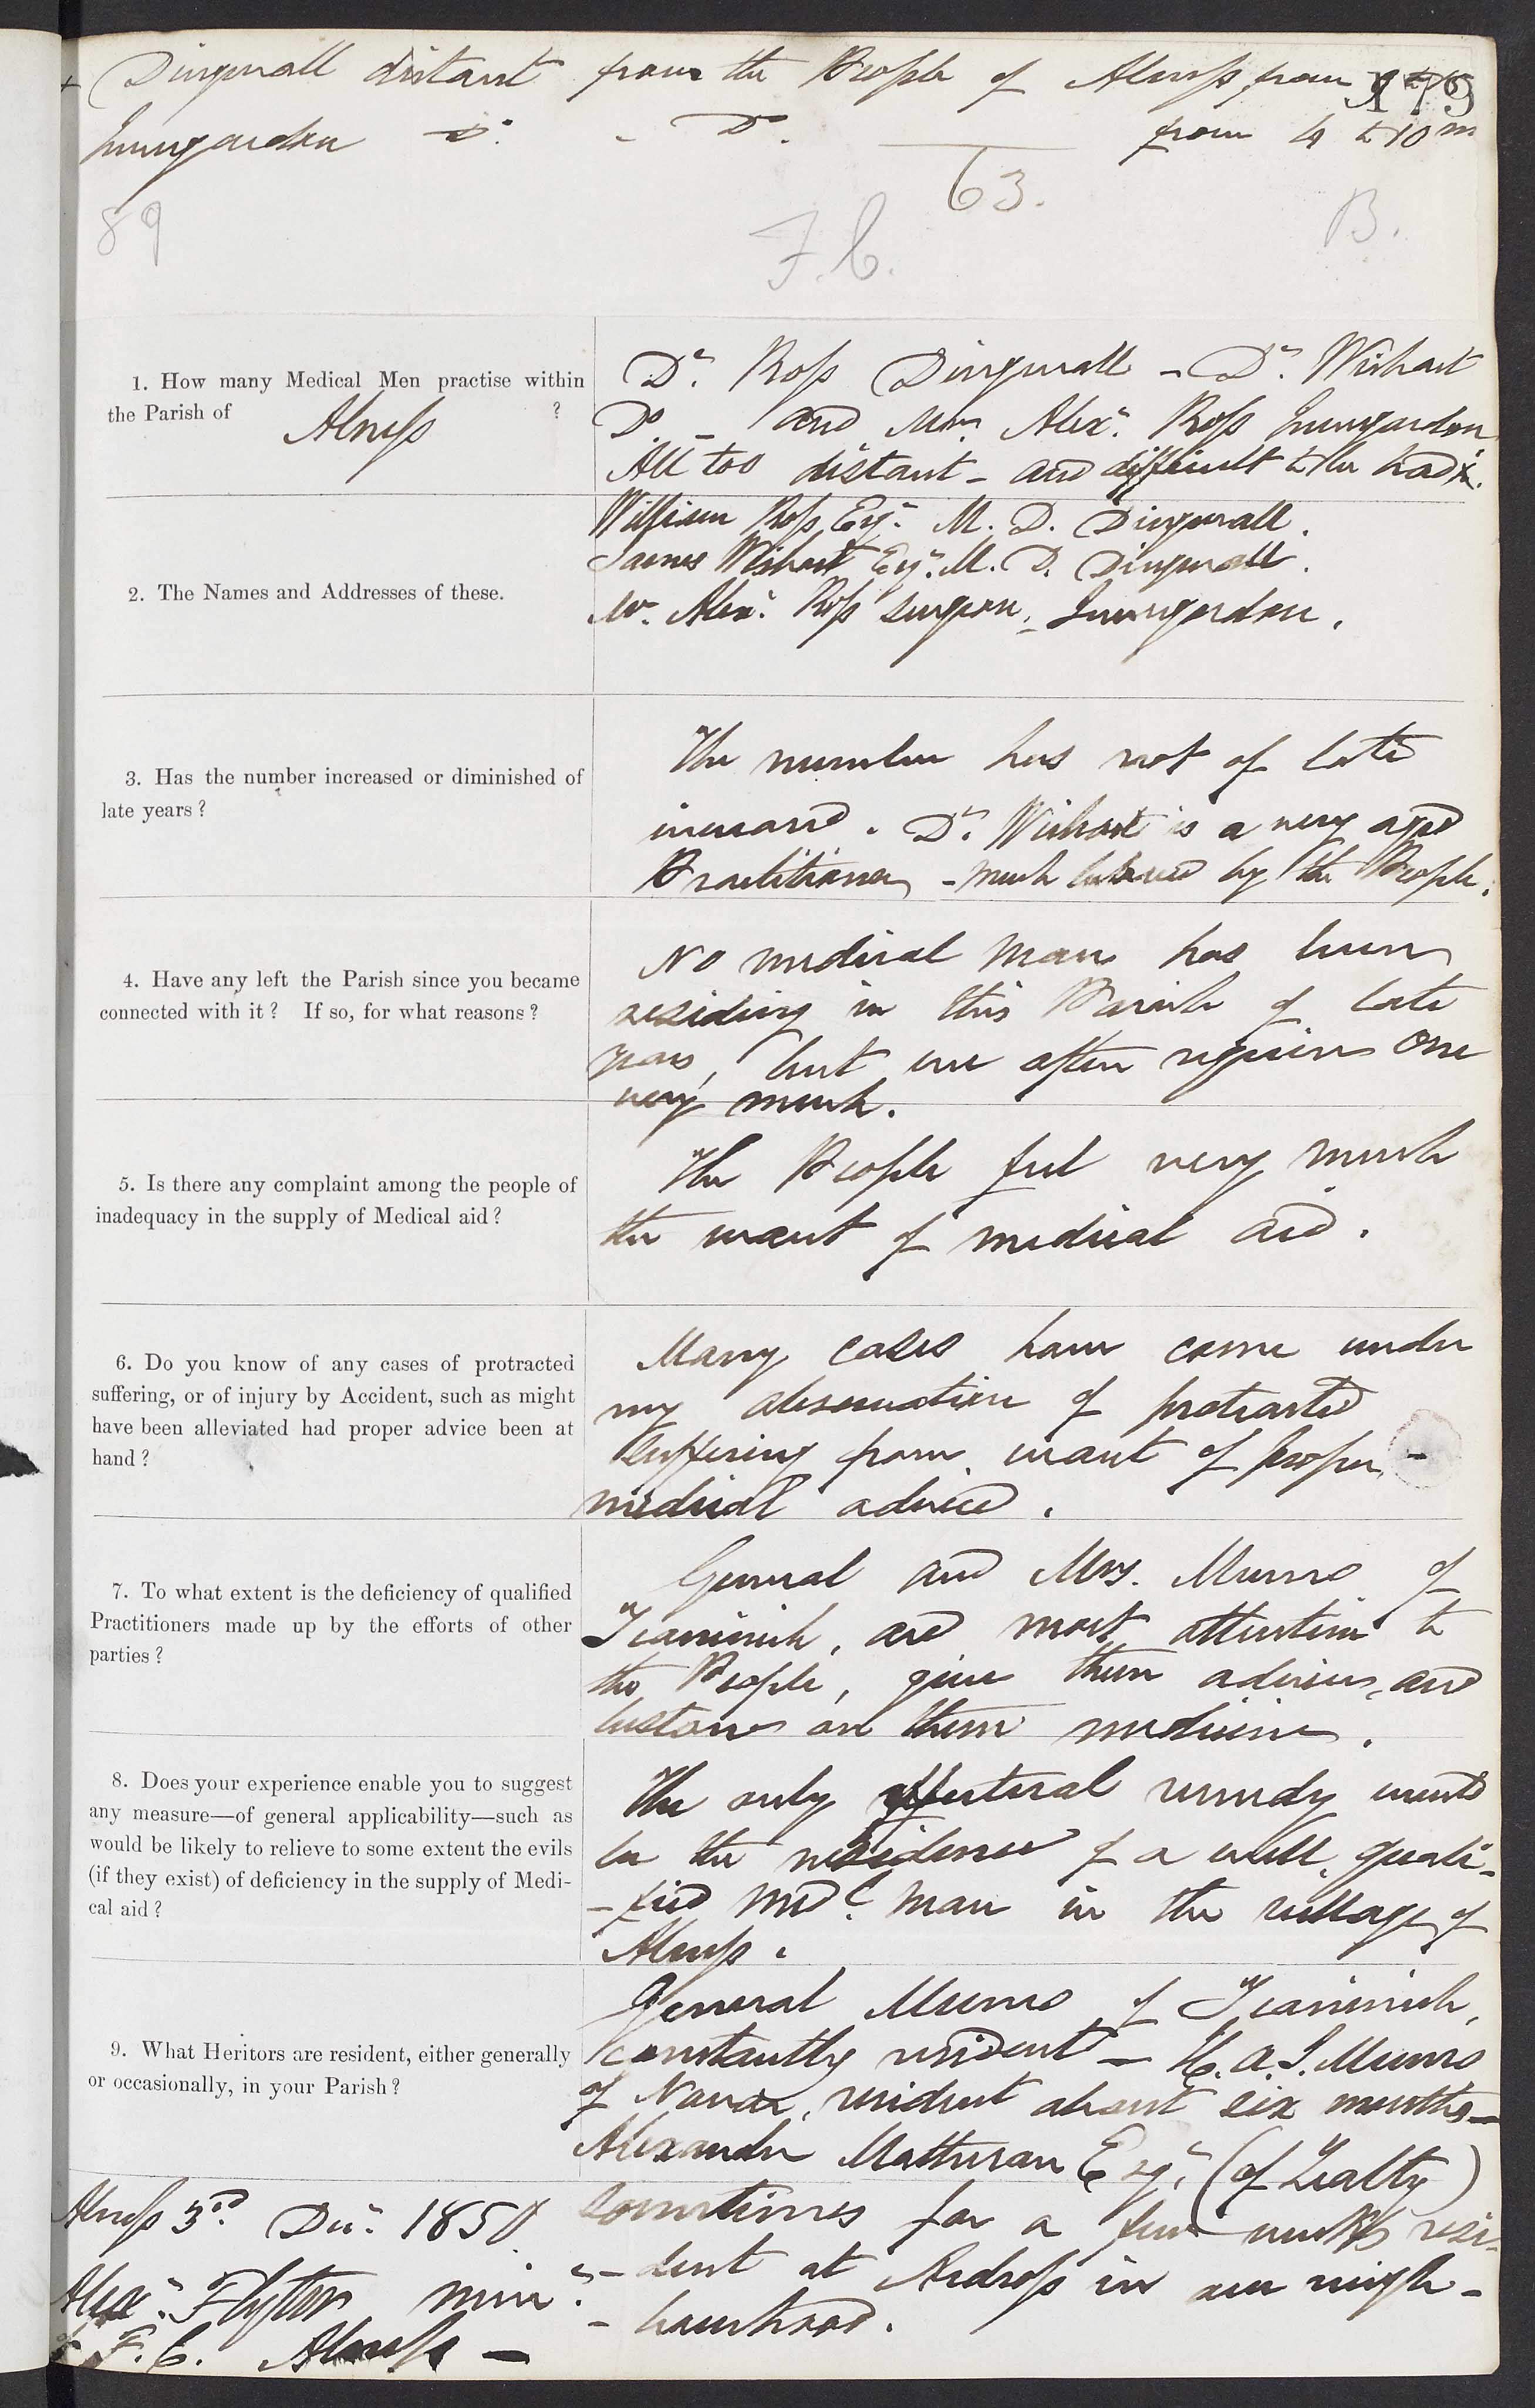 + Dingwall distant from the People of Alness, from
179
Invergordon Do. - Do. from 4 to 10 m
63.
89
F.C.
B.
1. How many Medical Men practise within
the Parish of Alness ?
Dr. Ross Dingwall - Dr. Wishart
Do - and Mr. Alexr. Ross Invergordon
All too distant - and difficult to be had x.
2. The Names and Addresses of these.
William Ross, Esqr. M. D. Dingwall.
James Wishart Esqr. M. D. Dingwall.
Mr. Alexr. Ross Surgeon, Invergordon.
3. Has the number increased or diminished of
late years?
The number has not of late
increased. Dr. Wishart is a very aged
Practitioner, - much beloved by the People.
4. Have any left the Parish since you became
connected with it? If so, for what reasons?
No medical man has been
residing in this Parish of late
years, but we often require one
very much.
5. Is there any complaint among the people of
inadequacy in the supply of Medical aid?
The People feel very much
the want of medical aid.
6. Do you know of any cases of protracted
suffering, or of injury by Accident, such as might
have been alleviated had proper advice been at
hand?
Many cases have come under
my observation of protracted
suffering from want of proper -
medical advice.
7. To what extent is the deficiency of qualified
Practitioners made up by the efforts of other
parties?
General and Mrs. Munro of
Teaninich, are most attentive to
the People, give them advice, and
bestow on them medicine.
8. Does your experience enable you to suggest
any measure—of general applicability—such as
would be likely to relieve to some extent the evils
(if they exist) of deficiency in the supply of Medi-
cal aid?
The only effectual remedy would
be the residence of a well quali-
-fied medl. man in the village of
Alness.
9. What Heritors are resident, either generally
or occasionally, in your Parish?
General Munro of Teaninich,
constantly resident - H. A. J. Munro
of Novar, resident about six months -
Alexander Matheson Esqr. (of Lealty)
sometimes for a few months resi-
-dent at Ardross in our neigh-
-bourhood.
Alness 3rd. Decr. 1850
Alexr. Flyter minr.
of F. C. Alness -